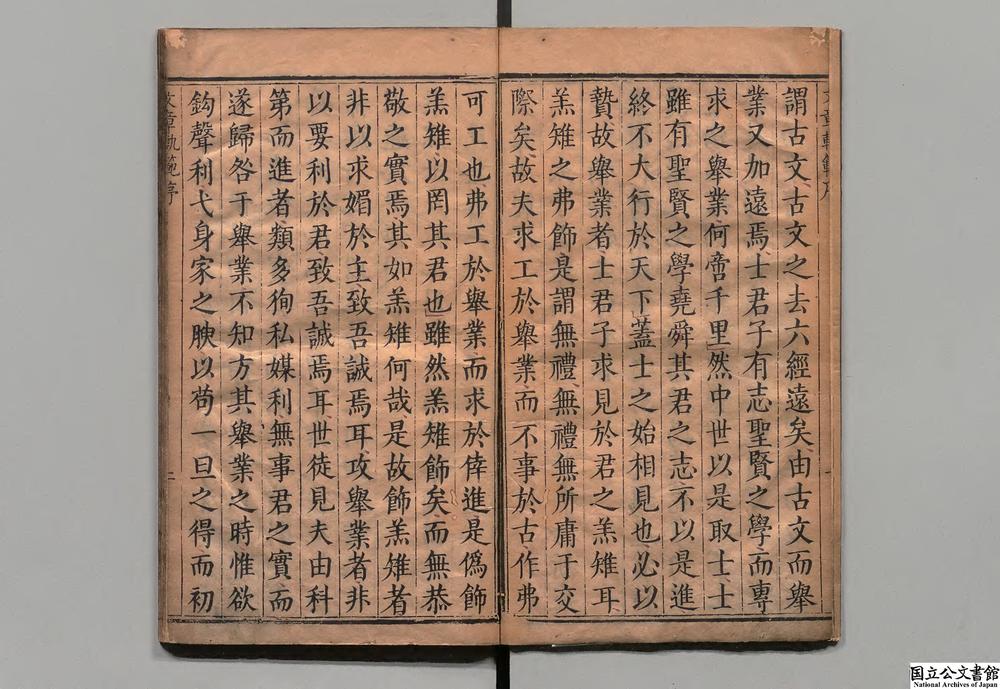 文章軌範序
一
謂古文古文之去六經遠矣由古文而舉
業又加遠焉士君子有志聖賢之學而專
求之舉業何啻千里然中世以是取士士
雖有聖賢之學堯舜其君之志不以是進
終不大行於天下蓋士之始相見也必以
贄故舉業者士君子求見於君之羔雉耳
羔雉之弗飾是謂無禮無禮無所庸于交
際矣故夫求工於舉業而不事於古作弗
可工也弗工於舉業而求於倖進是僞飾
羔雉以罔其君也雖然羔雉飾矣而無恭
敬之實焉其如羔雉何哉是故飾羔雉者
非以求媚於主致吾誠焉耳攻舉業者非
以要利於君致吾誠焉耳世徒見夫由科
第而進者類多狥私媒利無事君之實而
遂歸咎于舉業不知方其舉業之時惟欲
鈎聲利弋身家之腴以苟一旦之得而初
文章軌範序
二
国立公文書館
National Archives of Japan